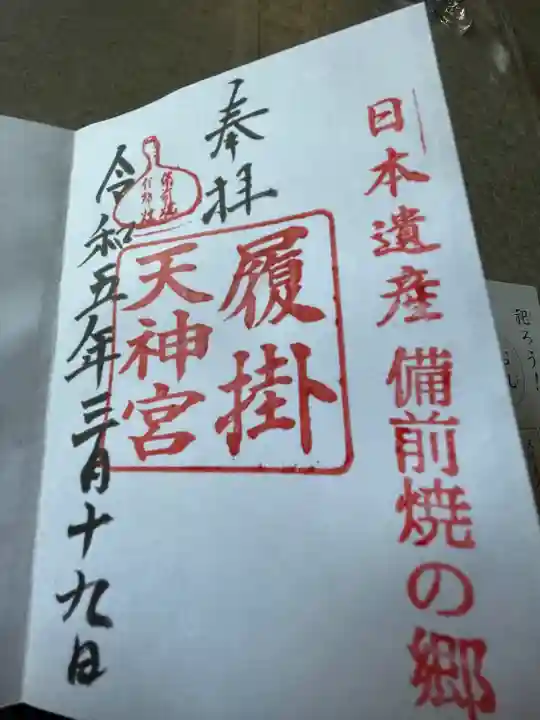 日本遺産 備前焼の郷
奉拝
履掛
天神宮
備前焼
令和五年三月十九日
祀ろう!